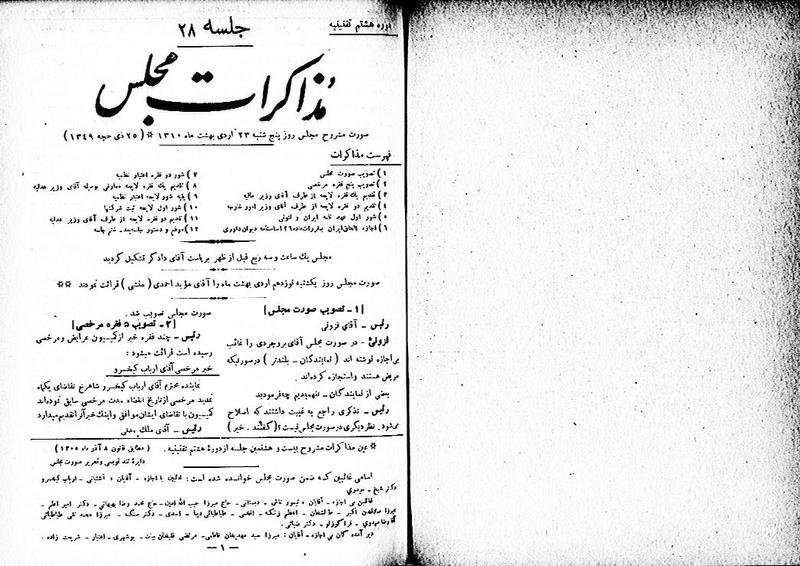 دوره هشتم تقنینیه
جلسه ۲۸
مذاکرات مجلس
صورت مشروح مجلس روز پنج شنبه ۲۳ اردی بهشت ماه ۱۳۱۰ * (۲۵ ذی حجه ۱۳۴۹)
فهرست مذاکرات
۱) تصویب صورت مجلس
۲) تصویب پنج فقره مرخصی
۳) تقدیم یک فقره لایحه از طرف آقای وزیر مالیه
۴) تقدیم دو فقره لایحه از طرف آقای وزیر امور خارجه
۵) شور اول عهد نامه ایران و لتونی
۶) اجازه الحاق ایران بمقررات ماده ۳۶ اساسنامه دیوان داوری
۷) شور دو فقره اعتبار نظمیه
۸) تقدیم یک فقره لایحه معارفی بوسیله آقای وزیر عدلیه
۹) بقیه شور لایحه اعتبار نظمیه
۱۰) شور اول لایحه ثبت شرکتها
۱۱) تقدیم دو فقره لایحه از طرف آقای وزیر عدلیه
۱۲) موقع و دستور جلسه بعد - ختم جلسه
مجلس یک ساعت و سه ربع قبل از ظهر بریاست آقای دادگر تشکیل گردید
صورت مجلس روز یکشنبه نوزدهم اردی بهشت ماه را آقای مؤید احمدی (منشی) قرائت نمودند **
[۱ - تصویب صورت مجلس]
رئیس - آقای فزونی
فزونی - در صورت مجلس آقای بروجردی را غائب
بی اجازه نوشته اند (نمایندگان - بلندتر) در صورتیکه
مریض هستند و استجازه کرده اند.
بعضی از نمایندگان - نفهمیدیم چه فرمودید
رئیس - تذکری راجع به غیبت داشتند که اصلاح
می شود. نظر دیگری در صورت مجلس نیست؟ (گفتند - خیر)
صورت مجلس تصویب شد.
[۲ - تصویب ۵ فقره مرخصی]
رئیس - چند فقره خبر از کمیسیون عرایض و مرخصی
رسیده است قرائت میشود:
خبر مرخصی آقای ارباب کیخسرو
نماینده محترم آقای ارباب کیخسرو شاهرخ تقاضای یکماه
تمدید مرخصی از تاریخ انقضاء مدت مرخصی سابق نموده اند
کمیسیون با تقاضای ایشان موافق و اینک خبر آنرا تقدیم میدارد
رئیس - آقای ملک مدنی
* عین مذاکرات مشروح بیست و هشتمین جلسه از دوره هشتم تقنینیه. (مطابق قانون ۸ آذر ماه ۱۳۰۵)
دایره تند نویسی و تحریر صورت مجلس
اسامی غائبین که ضمن صورت مجلس خوانده شده است: غائبین با اجازه - آقایان: آشتیانی - ارباب کیخسرو
دکتر شیخ -
غائبین بی اجازه - آقایان: تیمور تاش - دبستانی - حاج میرزا حبیب الله امین - حاج محمد رضا بهبهانی - دکتر امیر اعلم -
میرزا صادقخان اکبر - طالشخان - اعظم زنگنه - افخمی - طباطبائی دیبا - اسدی - دکتر سنگ - میرزا محمد تقی طباطبائی
آقا رضا مهدوی - قراگوزلو - دکتر ضیائی.
دیر آمده گان بی اجازه - آقایان: میرزا سید مهدیخان فاطمی - مرتضی قلیخان بیات - بوشهری - اعتبار - شریعت زاده.
- ۱ -